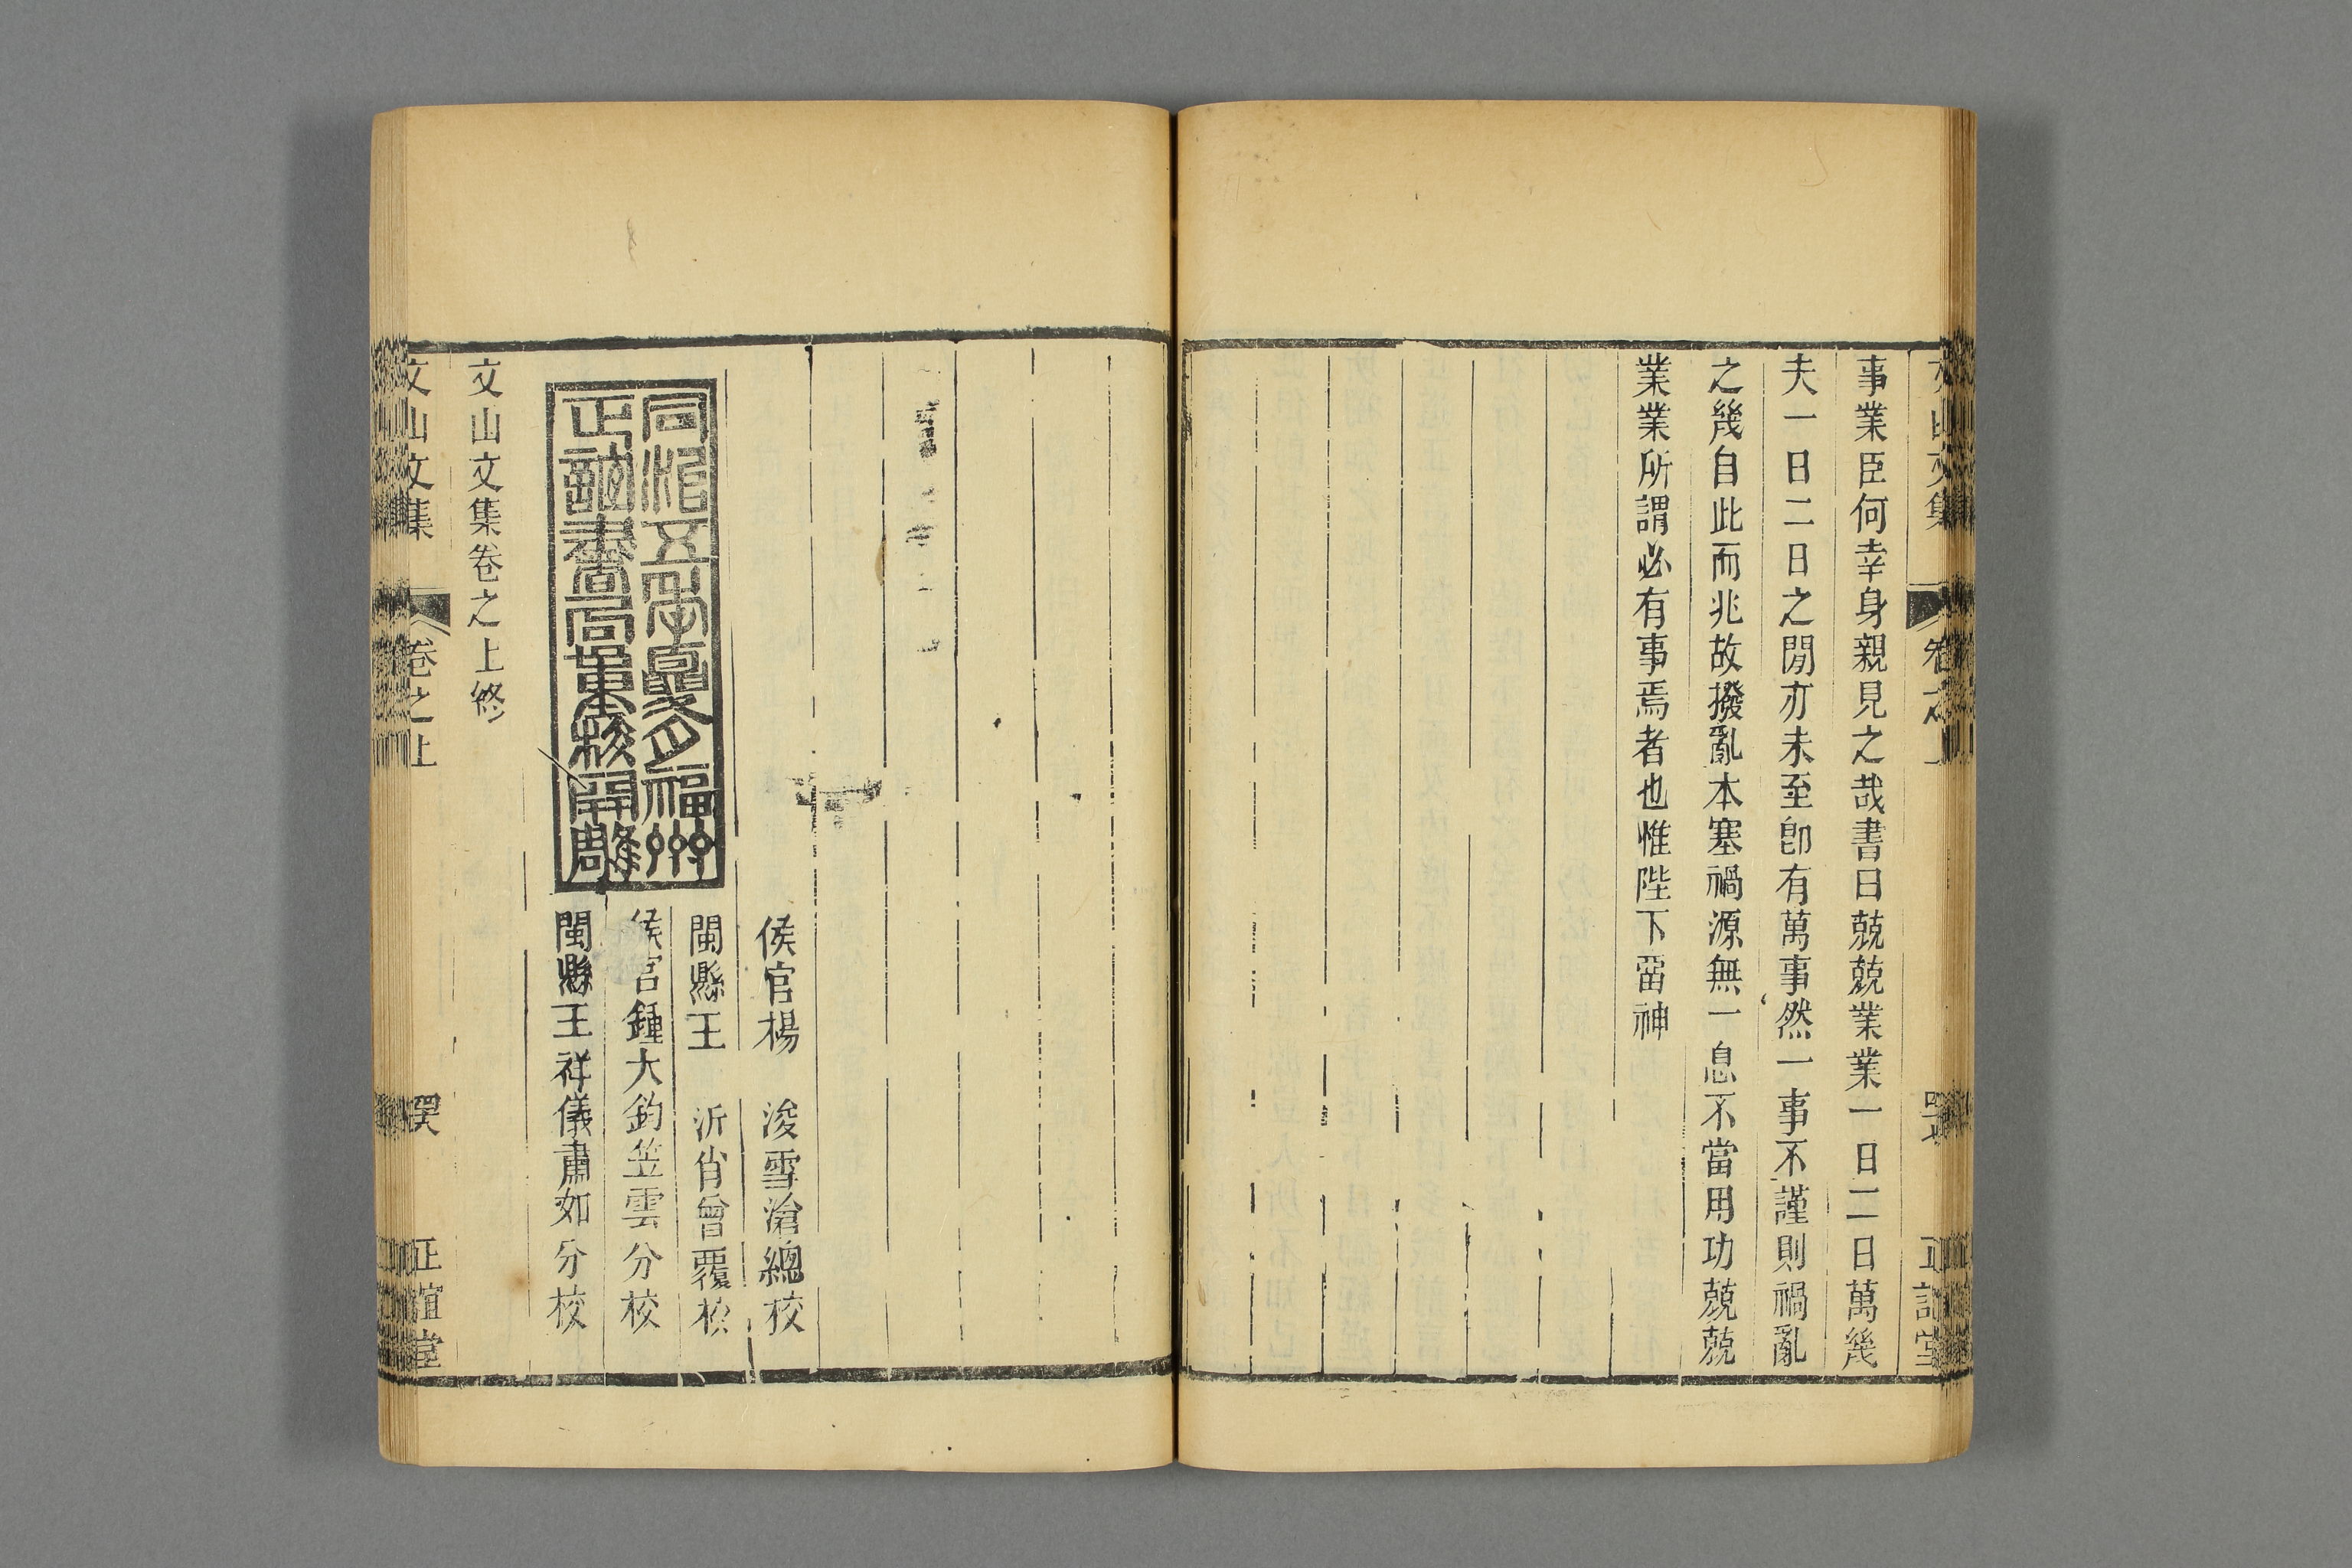 事業臣何幸身親見之哉書曰兢兢業業一日二日萬幾
夫一日二日之閒亦未至卽有萬事然一事不謹則禍亂
之幾自此而兆故撥亂本塞禍源無一息不當用功兢兢
業業所謂必有事焉者也惟陛下畱神
侯官楊 浚雪滄總校
閩縣王 沂肖曾覆校
侯官鍾大鈞笠雲分校
閩縣王祥儀肅如分校
同治五年夏月福州
正誼書局重校開雕
文山文集卷之上終
文山文集
卷之上
正誼堂